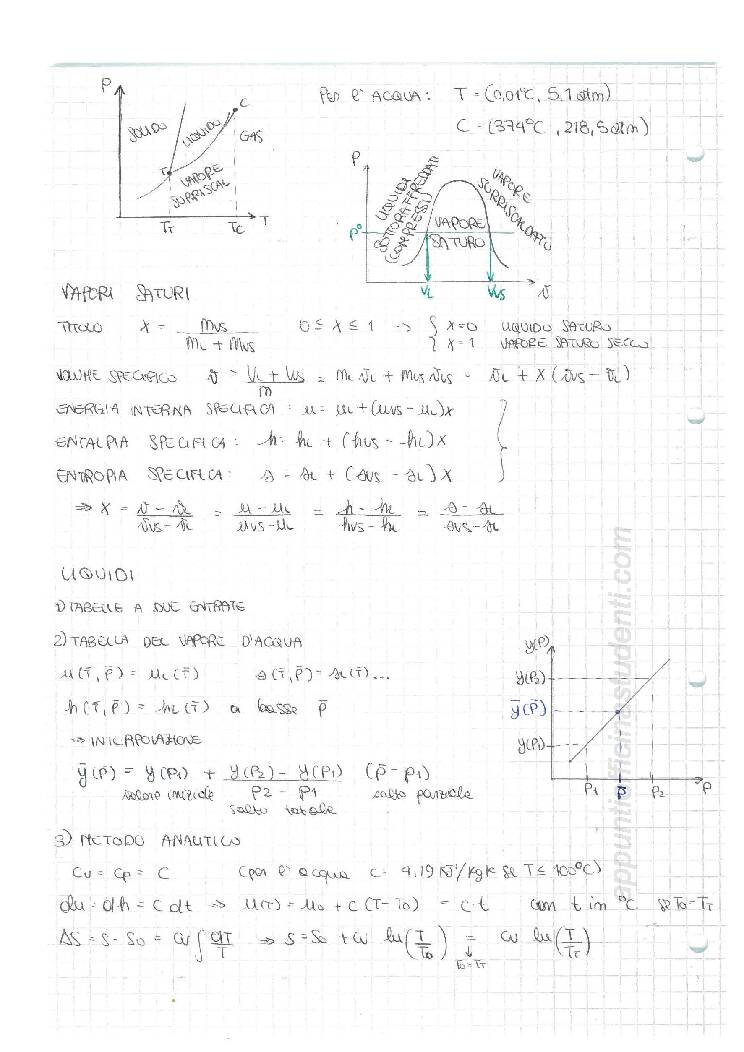 P
SOLIDO
LIQUIDO
C
GAS
T
VAPORE
SURRISCAL
T_T
T_C
T
PER L'ACQUA: T = (0,01°C, 5.1 atm)
C = (374°C, 218,5 atm)
P
LIQUIDI
SOTTORAFFREDDATI
(COMPRESSI)
VAPORE
SURRISCALDATO
P°
VAPORE
SATURO
V_L
V_VS
v
VAPORI SATURI
TITOLO X = m_vs / (m_L + m_vs) 0 ≤ X ≤ 1 -> { X=0 LIQUIDO SATURO
{ X=1 VAPORE SATURO SECCO
VOLUME SPECIFICO v = (V_L + V_vs) / m = m_L v_L + m_vs v_vs = v_L + X (v_vs - v_L)
ENERGIA INTERNA SPECIFICA : u = u_L + (u_vs - u_L)X
ENTALPIA SPECIFICA: h = h_L + (h_vs - h_L)X
ENTROPIA SPECIFICA: s = s_L + (s_vs - s_L)X
⇒ X = (v - v_L)/(v_vs - v_L) = (u - u_L)/(u_vs - u_L) = (h - h_L)/(h_vs - h_L) = (s - s_L)/(s_vs - s_L)
LIQUIDI
1) TABELLE A DUE ENTRATE
2) TABELLA DEL VAPORE D'ACQUA
u(T̄, P̄) = u_L(T̄) s(T̄, P̄) = s_L(T̄)...
h(T̄, P̄) = h_L(T̄) a basse P̄
⇒ INTERPOLAZIONE
ȳ(P̄) = y(P1) + (y(P2) - y(P1))/(P2 - P1) (P̄ - P1)
valore iniziale salto totale salto parziale
y(P)
y(P2)
ȳ(P̄)
y(P1)
P1
P̄
P2
P
3) METODO ANALITICO
Cv = Cp = C (per l'acqua c = 4.19 KJ/kgK se T ≤ 100°C)
du = dh = c dt ⇒ u(T) = u0 + c (T - T0) = c·t con t in °C se T0 = T_T
ΔS = S - S0 = cv ∫ dT/T ⇒ S = S0 + cv ln(T/T0) = cv ln(T/T_T)
T0 = T_T
appuntiofficinastudenti.com